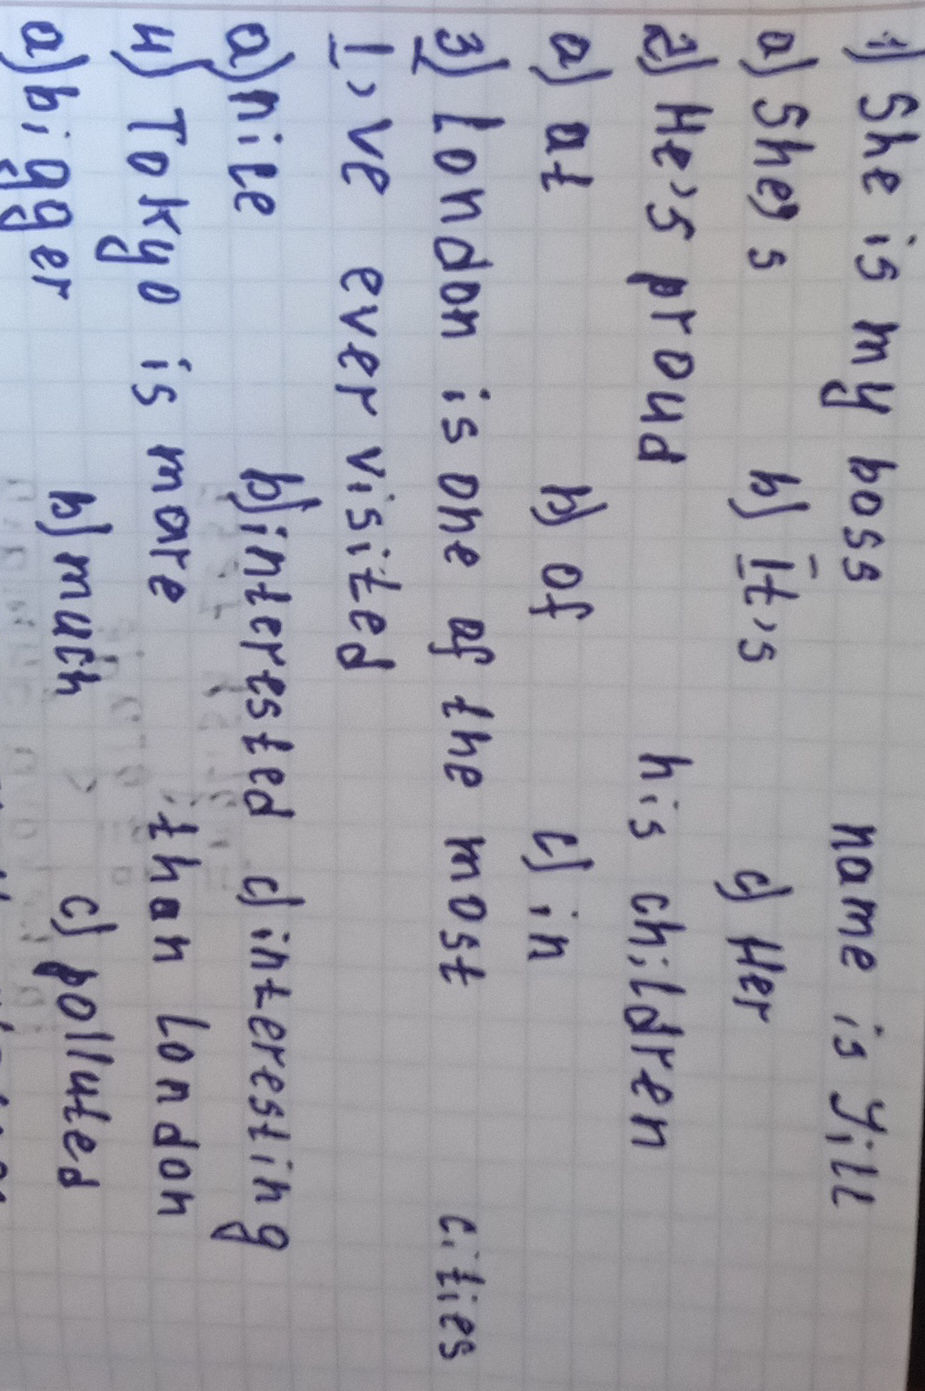 1) She is my boss name is Jill
a) She's b) It's c) Her
2) He's proud his children
a) at b) of c) in
3) London is one of the most cities
I've ever visited
a) nice b) interested c) interesting
4) Tokyo is more than London
a) bigger b) much c) polluted